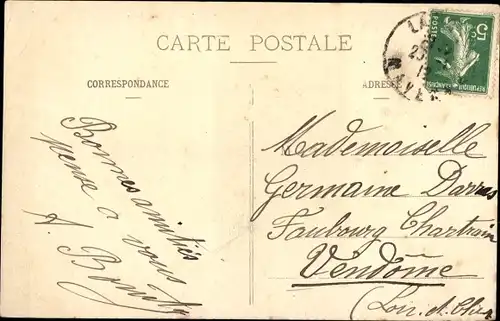 CARTE POSTALE
CORRESPONDANCE
ADRESSE
5c
POSTES
REPUBLIQUE FRANCAISE
Bonnes amitiés
pense a vous
A.
Mademoiselle
Germaine
Faubourg Chartrain
Vendôme
(Loir-et-Cher